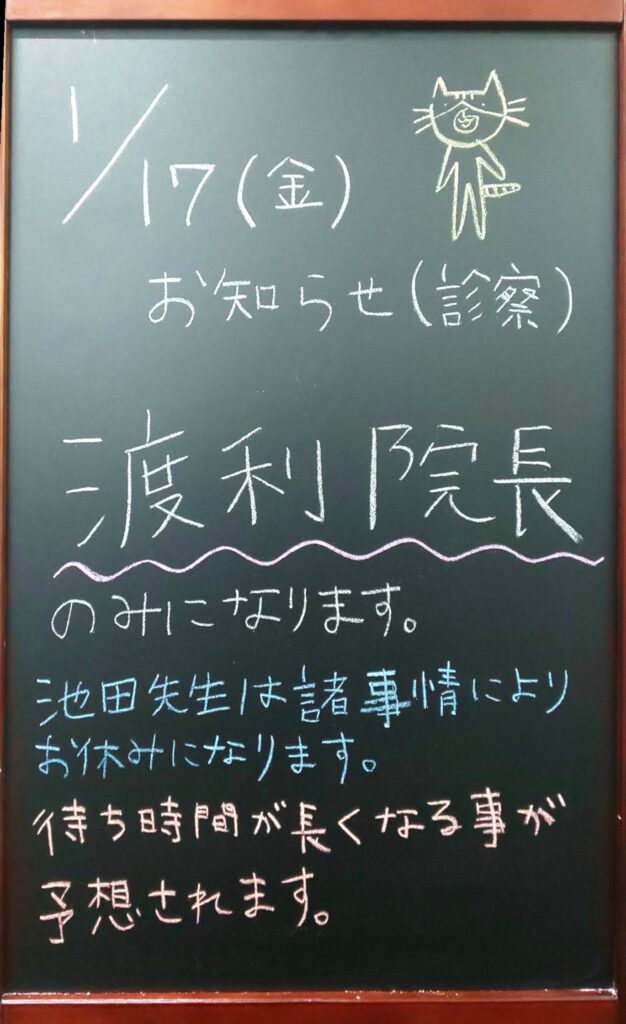 1/17(金)
お知らせ(診察)
渡利院長
のみになります。
池田先生は諸事情により
お休みになります。
待ち時間が長くなる事が
予想されます。